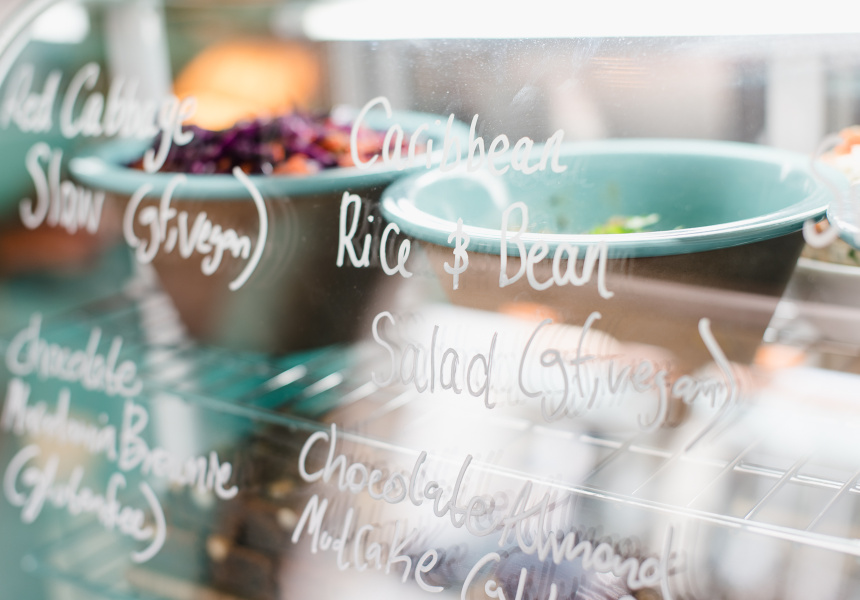 Red Cabbage
Slaw (gf, vegan)
Caribbean
Rice & Bean
Salad (gf, vegan)
Chocolate
Macadamia Brownie
(Gluten free)
Chocolate Almond
Mud Cake